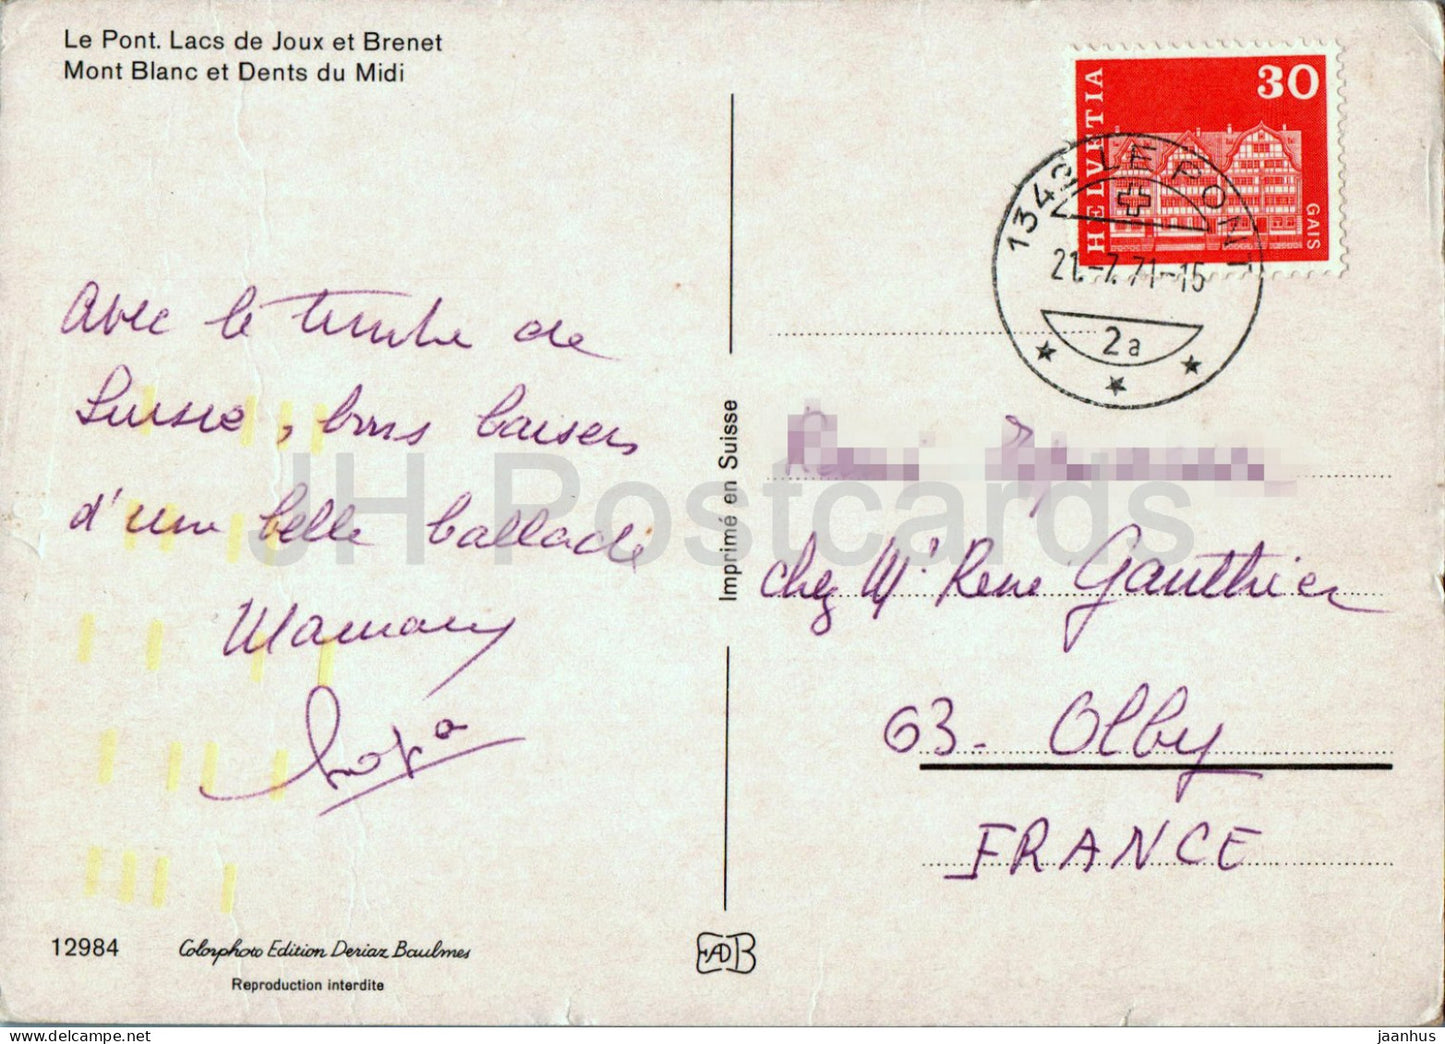 Le Pont. Lacs de Joux et Brenet
Mont Blanc et Dents du Midi
HELVETIA
30
GAIS
1342 LE PONT
21.-7.71-15
2a
Avec le timbre de
Suisse, bons baisers
d'une belle ballade
Maman
Papa
Imprimé en Suisse
chez Mr René Gauthier
63 - Olby
FRANCE
12984
Colorphoto Edition Deriaz Baulmes
Reproduction interdite
EADB
JH Postcards
jaanhus © delcampe.net